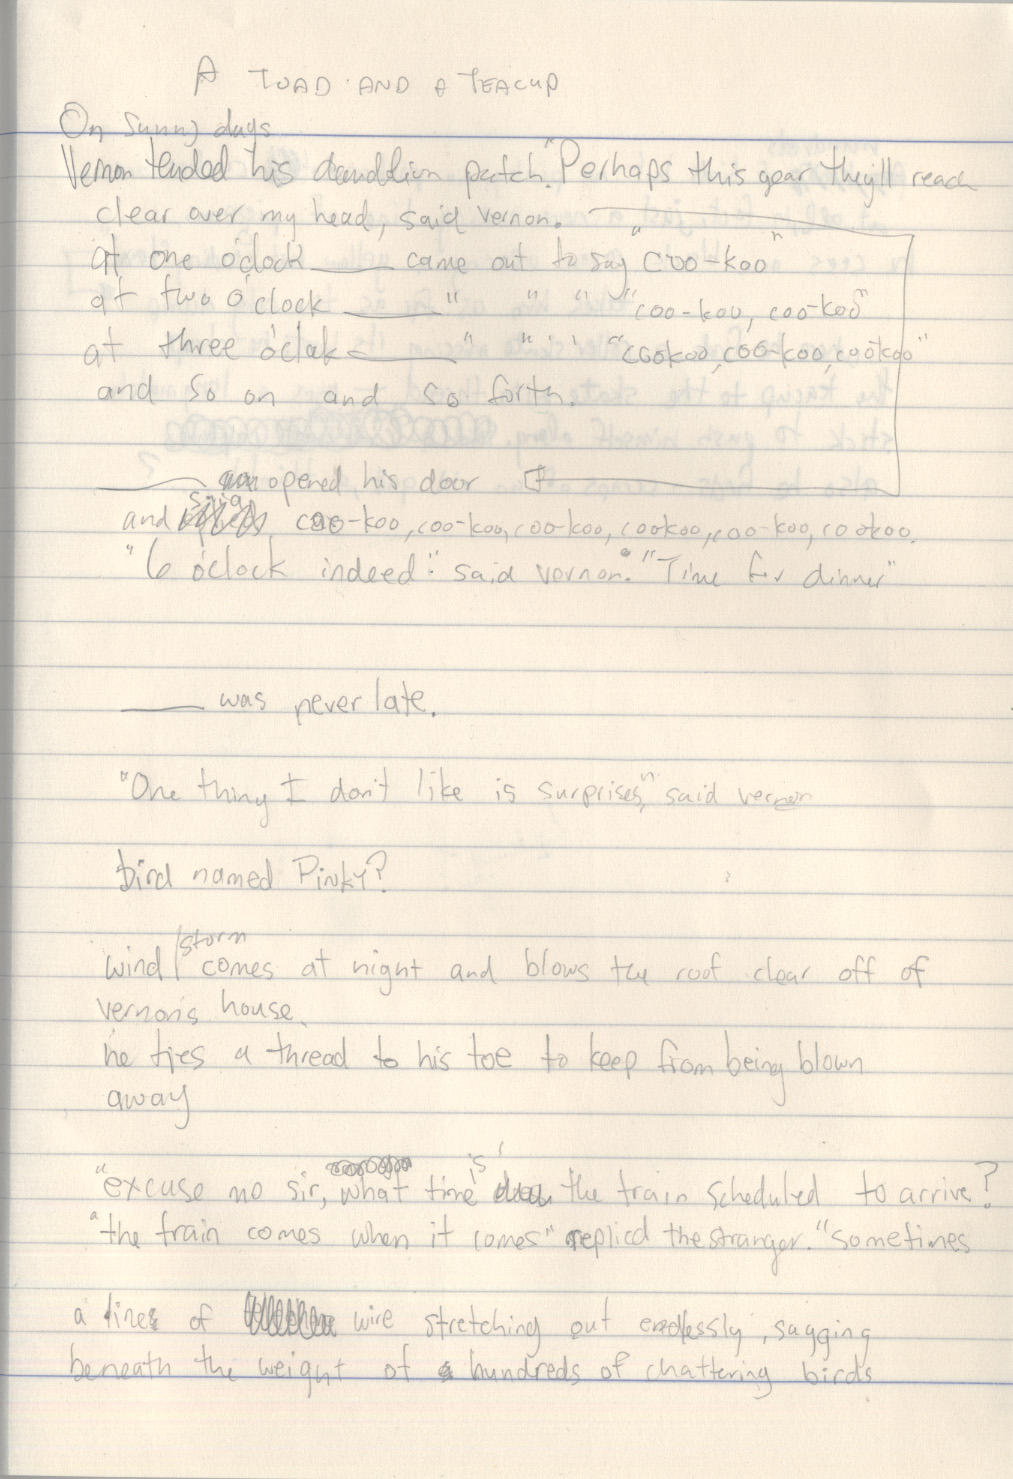 A TOAD AND A TEACUP
On Sunny days
Vernon tended his danddlion patch. "Perhaps this year they'll reach
clear over my head, said vernon.
at one o'clock ____ came out to say "coo-koo"
at two o'clock ____ " " " "coo-koo, coo-koo"
at three o'clok ____ " " " "cookoo, coo-koo, cookoo"
and so on and so forth.
____ opened his door
and said coo-koo, coo-koo, coo-koo, cookoo, coo-koo, cookoo.
"6 o'clock indeed". said vernon. "Time for dinner"
____ was never late.
"One thing I don't like is surprises", said vernon
bird named Pinky?
wind storm comes at night and blows the roof clear off of
vernon's house.
he ties a thread to his toe to keep from being blown
away
"excuse me sir, what time is the train scheduled to arrive?
"the train comes when it comes" replied the stranger. "sometimes
a line of wire stretching out endlessly, sagging
beneath the weight of hundreds of chattering birds